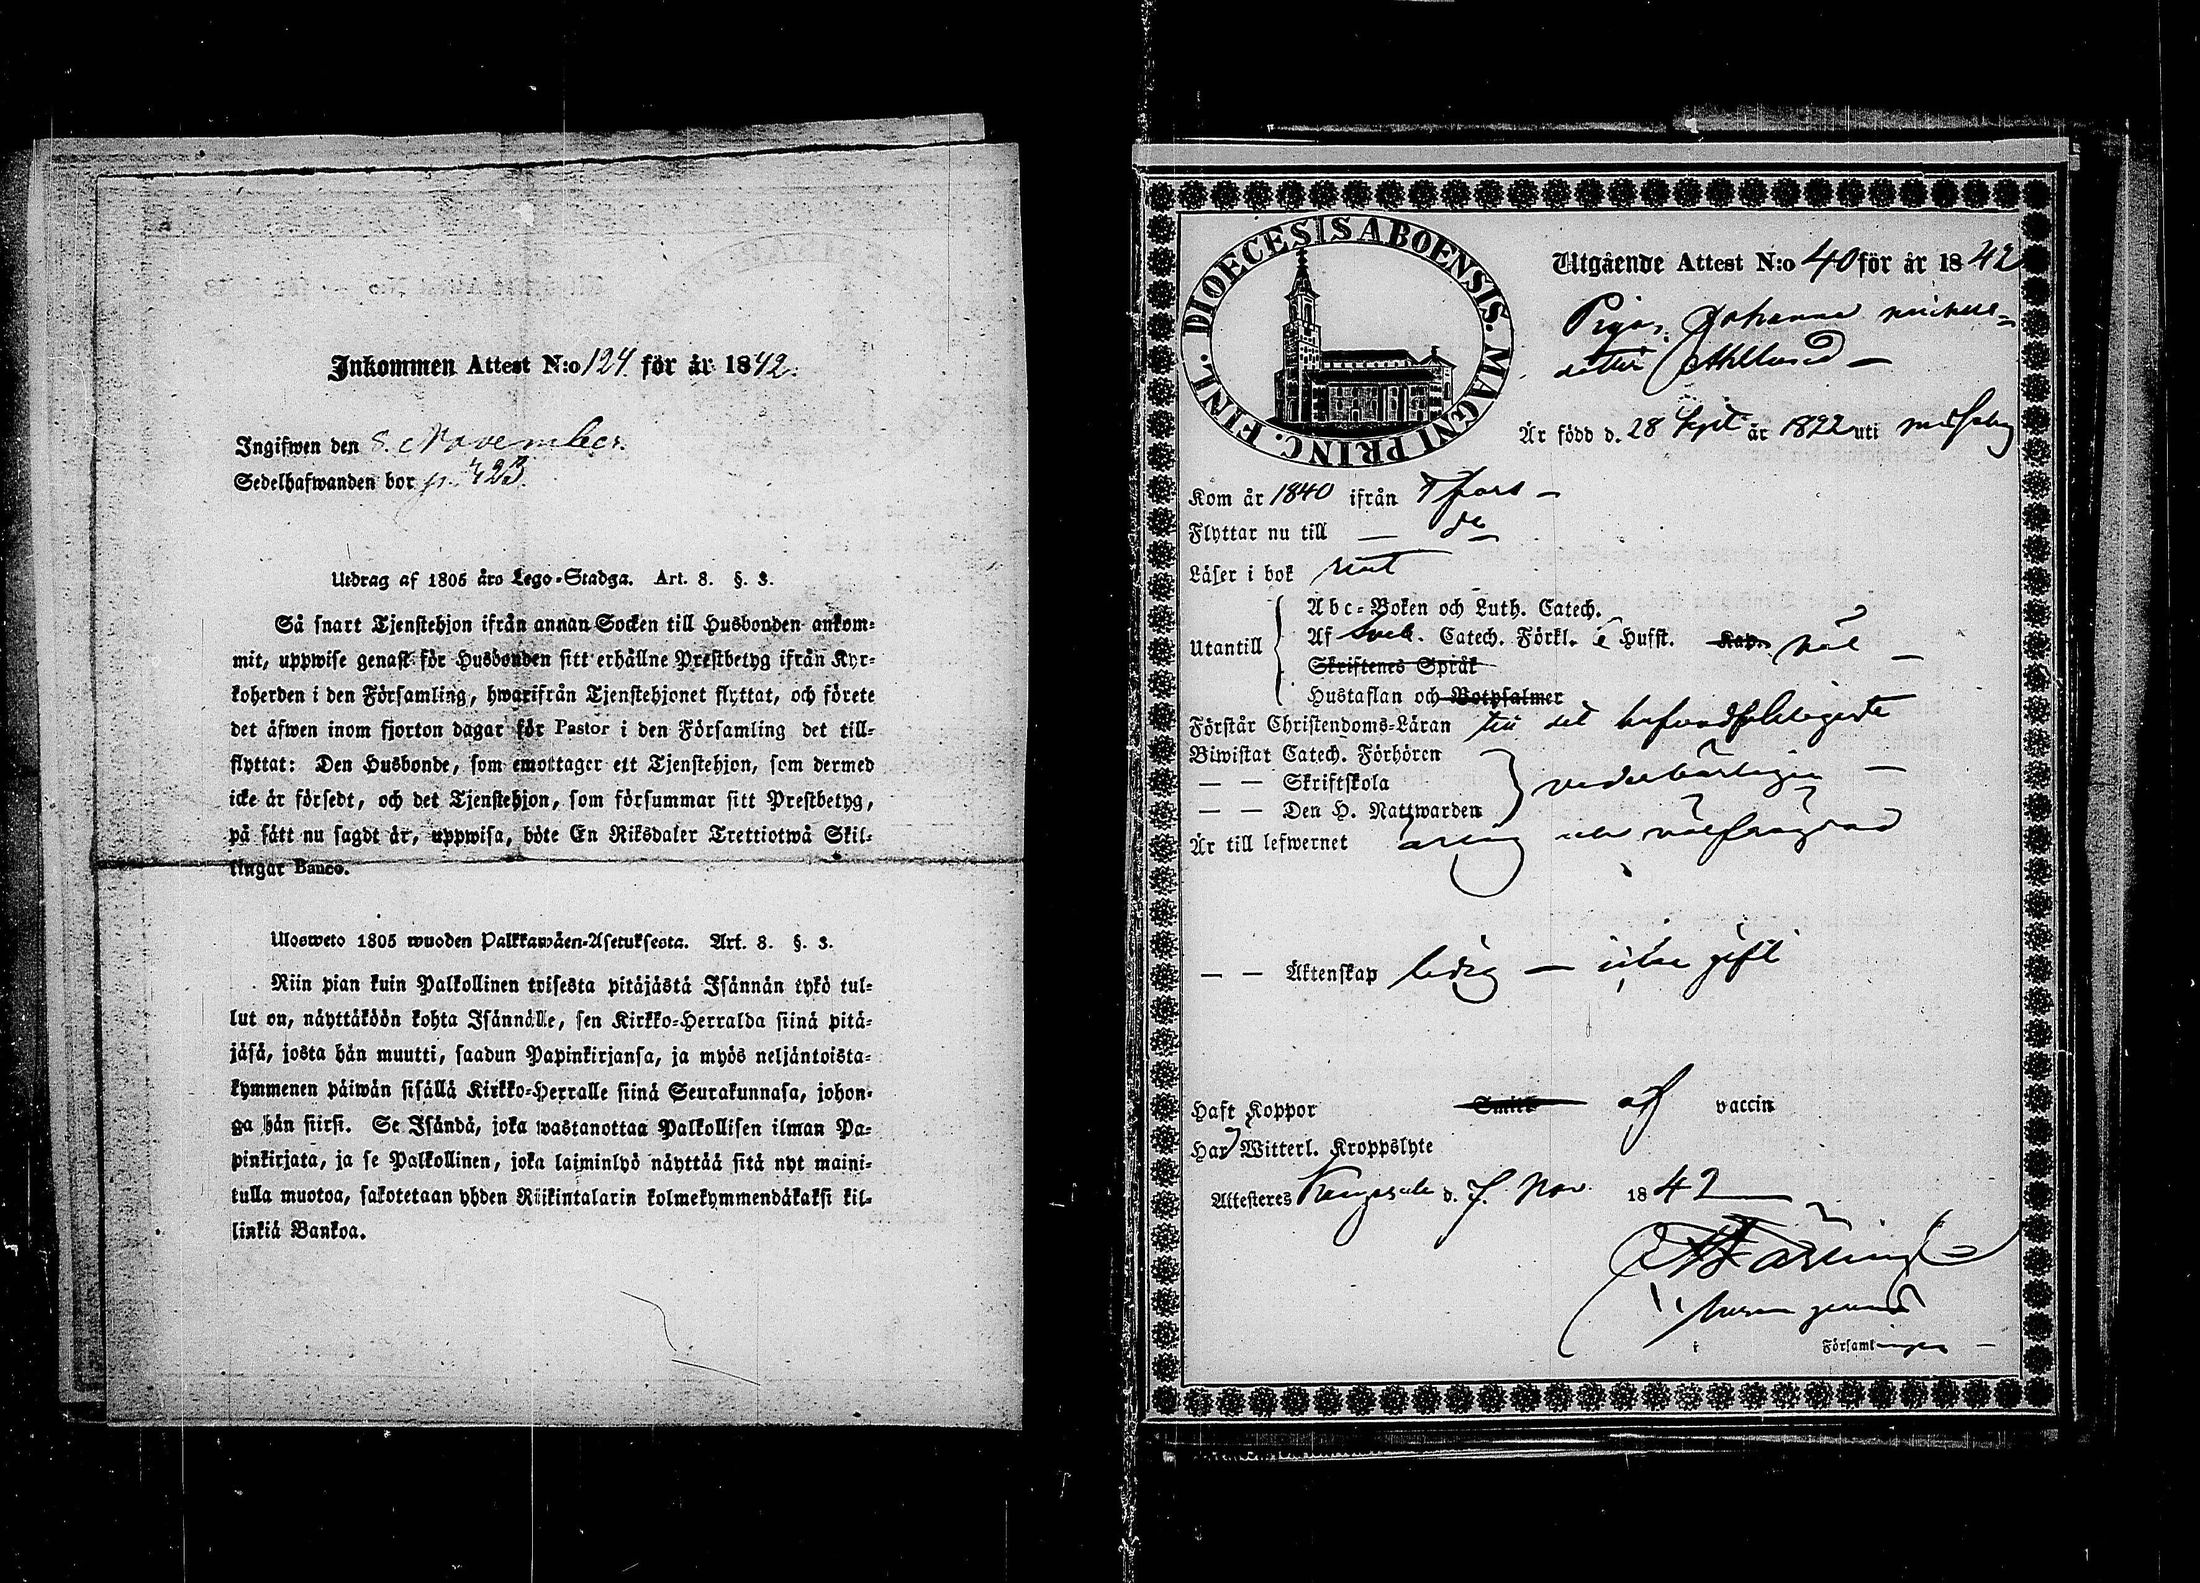 Inkommen Attest N:o 124 för år 1842.
Ingifwen den 8. November.
Sedelhafwanden bor p. 423.
Utdrag af 1805 års Lego-Stadga. Art. 8. §. 3.
Så snart Tjenstehjon ifrån annan Socken till Husbonden ankom-
mit, uppwise genast för Husbonden sitt erhållne Prestbetyg ifrån Kyr-
koherden i den Församling, hwarifrån Tjenstehjonet flyttat, och förete
det äfwen inom fjorton dagar för Pastor i den Församling det till-
flyttat: Den Husbonde, som emottager ett Tjenstehjon, som dermed
icke är försedt, och det Tjenstehjon, som försummar sitt Prestbetyg,
på sätt nu sagdt är, uppwisa, böte En Riksdaler Trettiotwå Skil-
lingar Banco.
Ulosweto 1805 wuoden Palkkawäen-Asetuksesta. Art. 8. §. 3.
Niin pian kuin Palkollinen toisesta pitäjästä Isännän tykö tul-
lut on, näyttäköön kohta Isännälle, sen Kirkko-Herralda siinä pitä-
jäsä, josta hän muutti, saadun Papinkirjansa, ja myös neljäntoista-
kymmenen päiwän sisällä Kirkko-Herralle siinä Seurakunnasa, johon-
ga hän siirsi. Se Isändä, joka wastanottaa Palkollisen ilman Pa-
pinkirjata, ja se Palkollinen, joka laiminlyö näyttää sitä nyt maini-
tulla muotoa, sakotetaan yhden Riikintalarin kolmekymmendäkaksi kil-
linkiä Bankoa.
DIOECESIS ABOENSIS. MAGNI PRINC. FINL.
Utgående Attest N:o 40 för år 1842
Pigan Johanna Michels-
dotter Ahllund
Är född d. 28 Sept år 1822 uti
Kom år 1840 ifrån T fors
Flyttar nu till — do
Läser i bok rent
Abc-Boken och Luth. Catech.
Utantill Af Sveb. Catech. Förkl. 6 Hufst. Kap. väl
Skriftenes Språk
Hustaflan och Botpsalmer
Förstår Christendoms-Läran till det hufvudsakligaste
Biwistat Catech. Förhören
— — Skriftskola vederbörligen
— — Den H. Nattwarden
Är till lefwernet ärlig och välfrägdad
— — Äktenskap ledig — icke gift
Haft Koppor Smitt af vaccin
Har Witterl. Kroppslyte
Attesteres Kangasala d. 7. Nov. 1842
i Församlingen